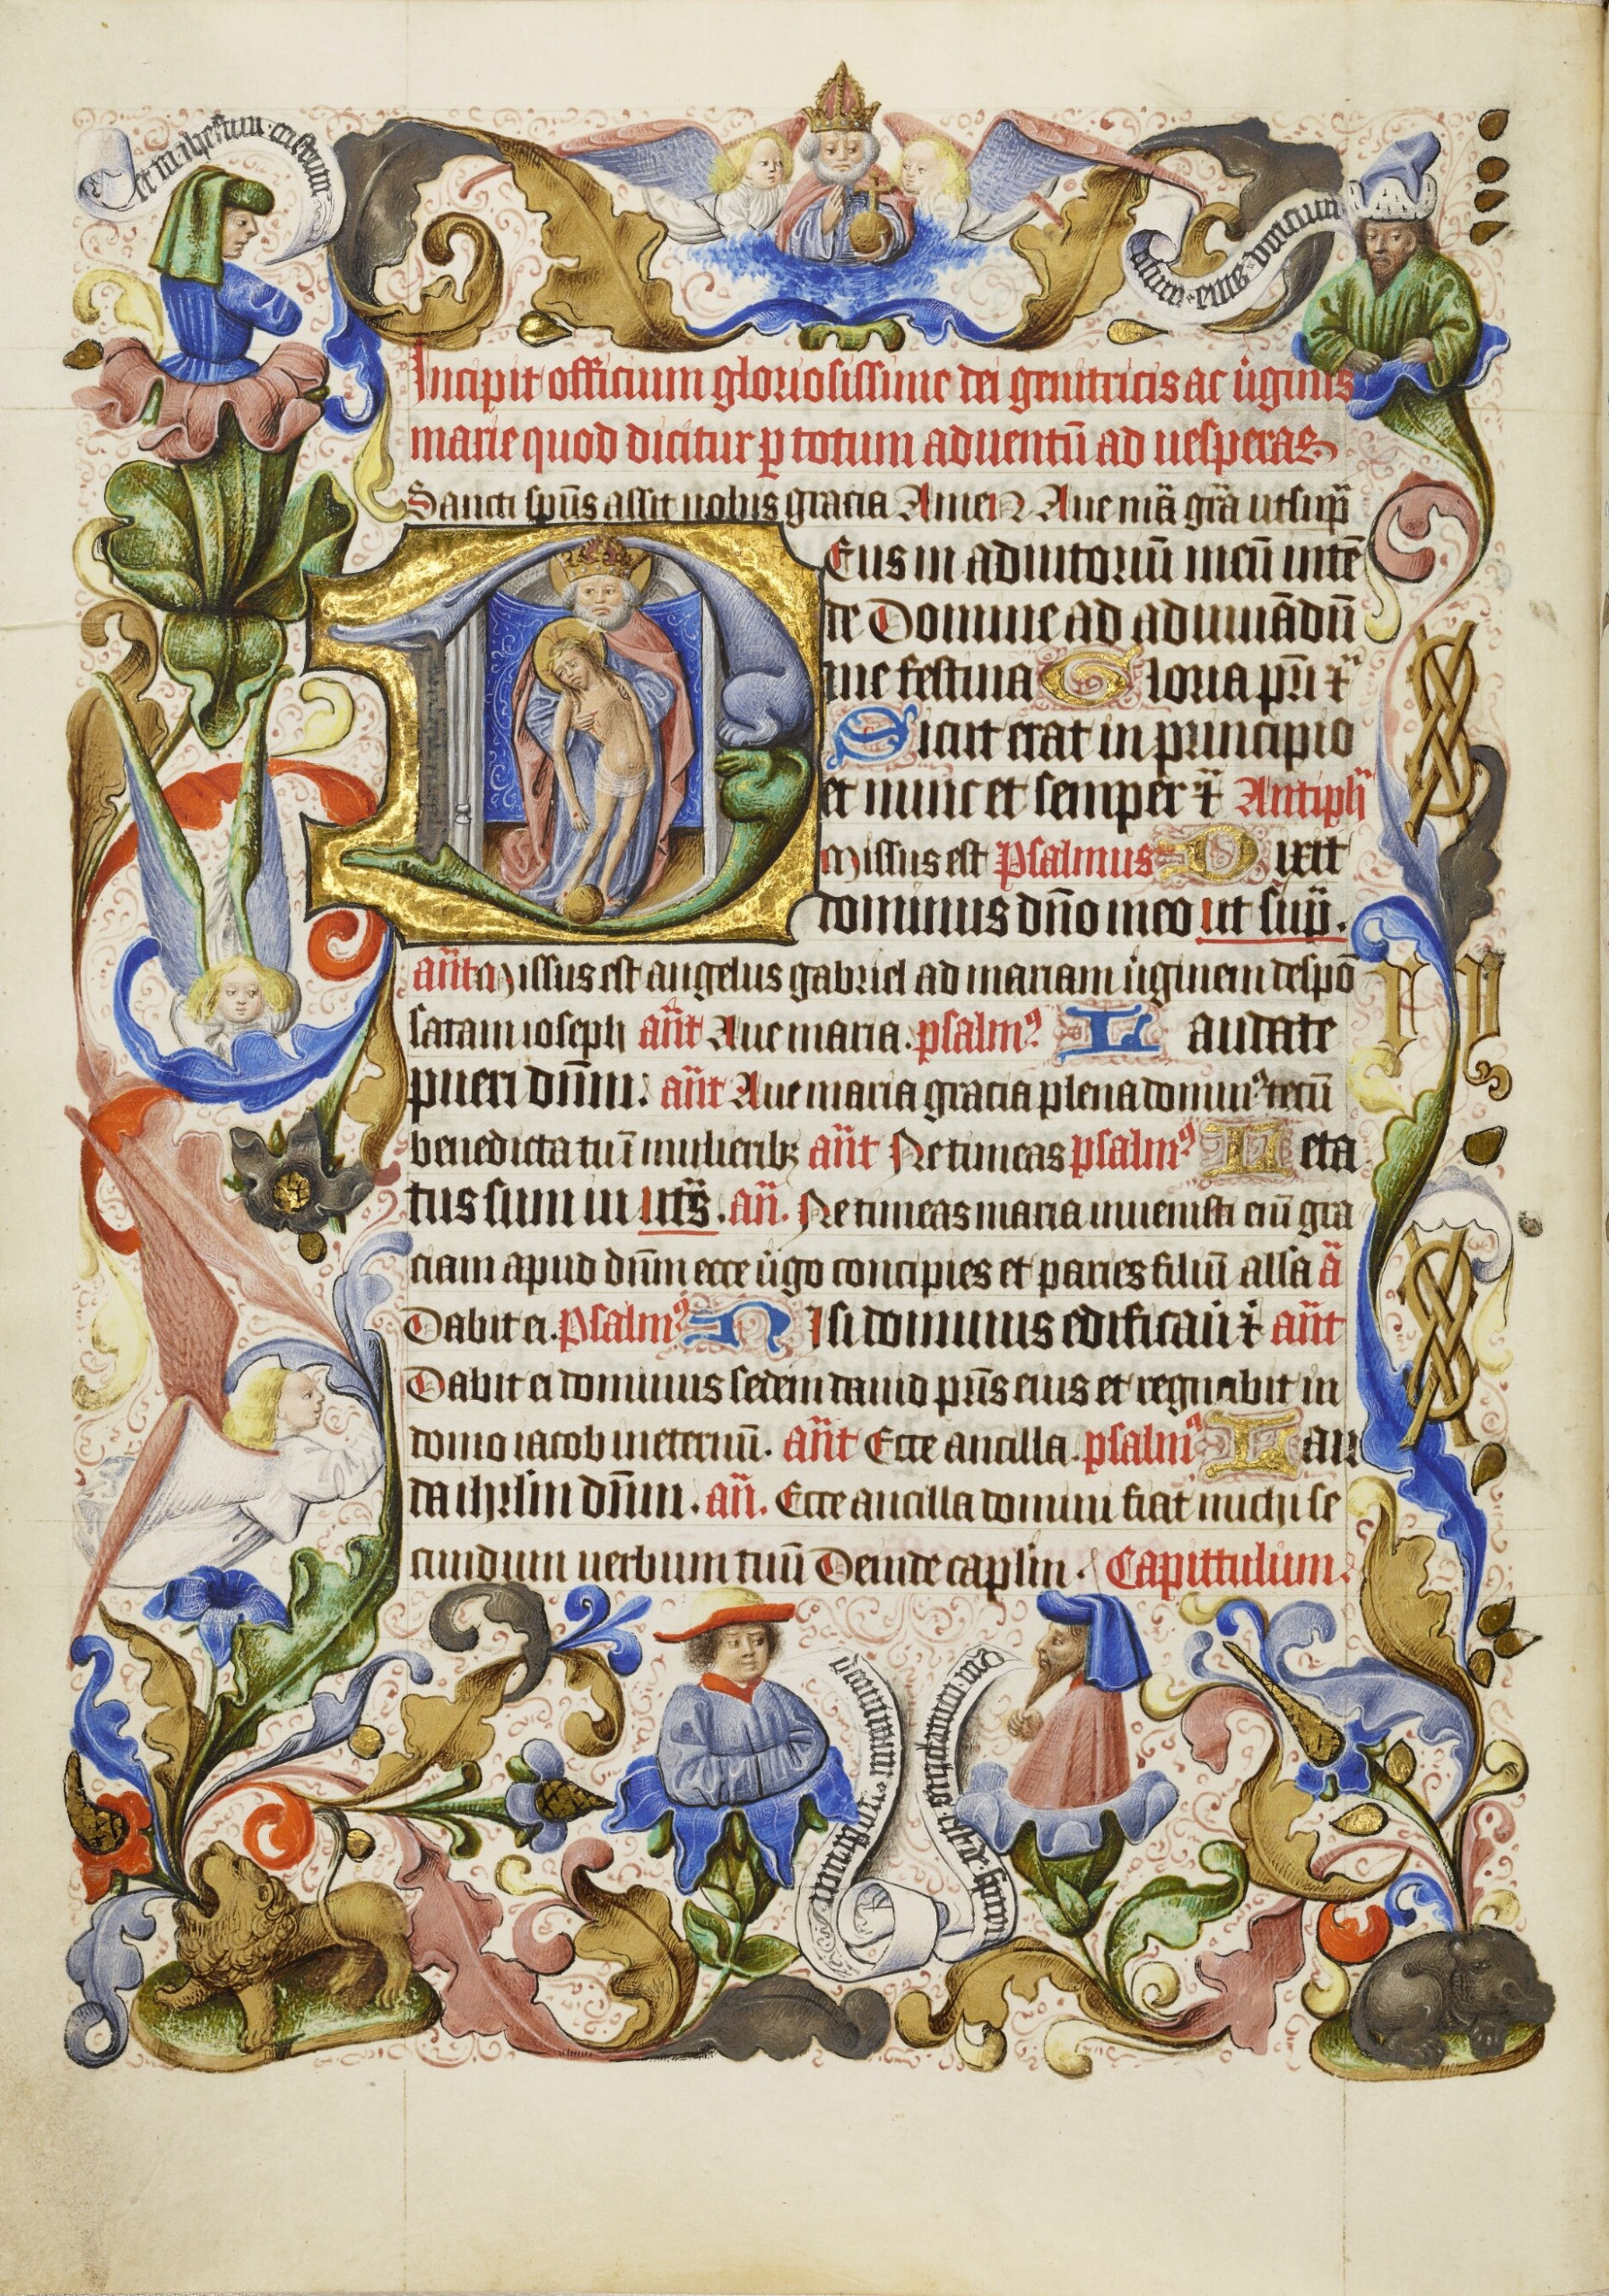 Incipit officium gloriosissime dei genitricis ac v̇ginis
marie quod dicitur p totum aduentū ad uesperas
Sancti spūs assit nobis gracia Amen Aue mā grā ut sup̄
Eus in adiutoriū meū intē
de Domine ad adiuuādū
me festina Gloria pr̄i ⁊
Sicut erat in principio
et nunc et semper ⁊ Antiph
Missus est Psalmus Dixit
dominus dn̄o meo ut sup̄.
an̄t Missus est angelus gabriel ad mariam v̇ginem despō
satam ioseph an̄t Aue maria. psalmꝰ Laudate
pueri dn̄m. an̄t Aue maria gracia plena dominꝰ tecū
benedicta tu ī mulieribꝫ an̄t Ne timeas psalmꝰ Leta
tus sum in .an̄. Ne timeas maria inuenisti eni̅ gra
ciam apud dn̄m ecce v̇go concipies et paries filiū alla ā
Dabit ei. Psalmꝰ Nisi dominus edificau̇ ⁊ an̄t
Dabit ei dominus sedem dauid pr̄is eius et regnabit in
domo iacob in eternū. an̄t Ecce ancilla. psalmꝰ Lau
da ihrlm dn̄m. an̄. Ecce ancilla domini fiat michi se
cundum uerbum tuū Deinde caplm. Capittulum.